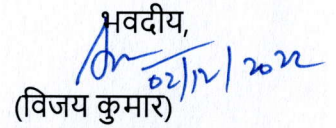 भवदीय,
02/12/2022
(विजय कुमार)